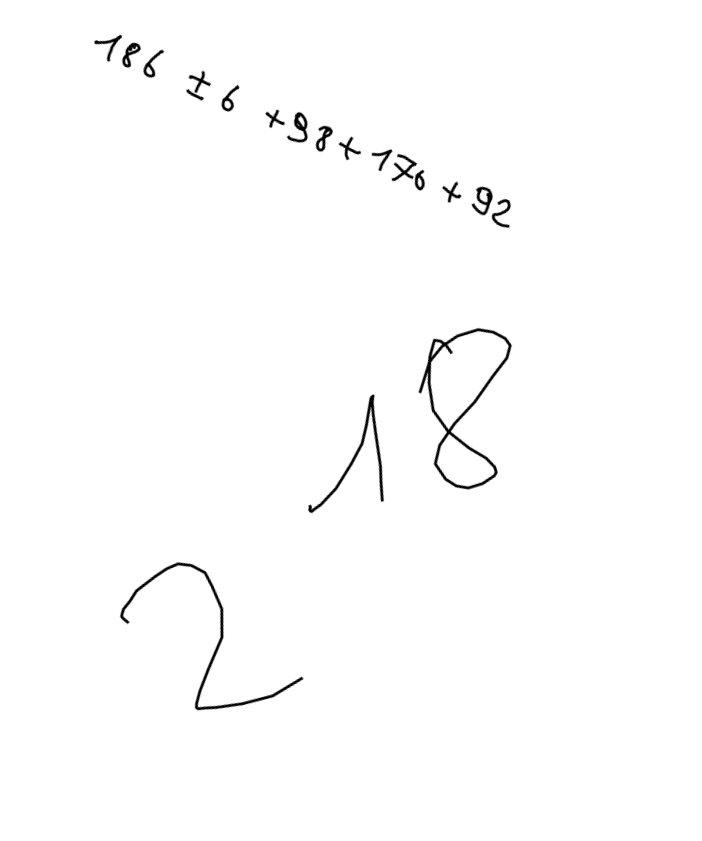 186 ± 6 + 98 + 176 + 92
18
2